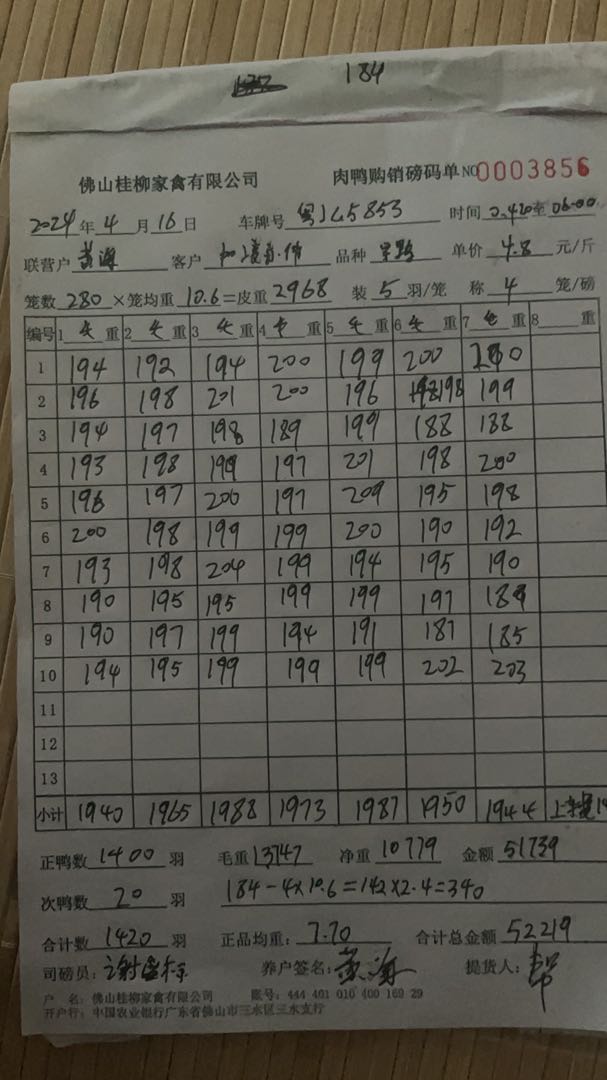 184
佛山桂柳家禽有限公司 肉鸭购销磅码单 NO 0003856
2024年4月16日 车牌号 粤J65853 时间 至06:00
联营户 黄海 客户 品种 单价 4.8 元/斤
笼数 280 ×笼均重 10.6 =皮重 2968 装 5 羽/笼 称 4 笼/磅
编号 1 重 2 重 3 重 4 重 5 重 6 重 7 重 8 重
1 194 192 194 200 199 200
2 196 198 201 200 196 198 199
3 194 197 198 189 199 188 188
4 193 198 199 197 201 198 200
5 196 197 200 197 209 195 198
6 200 198 199 199 200 190 192
7 193 198 204 199 194 195 190
8 190 195 195 199 199 197 189
9 190 197 199 194 191 187 185
10 194 195 199 199 199 202 203
11
12
13
小计 1940 1965 1988 1973 1987 1950 1944
正鸭数 1400 羽 毛重 13747 净重 10779 金额 51739
次鸭数 20 羽 184-4×10.6=142×2.4=340
合计数 1420 羽 正品均重: 7.70 合计总金额 52219
司磅员: 养户签名: 黄海 提货人:
户 名: 佛山桂柳家禽有限公司 账号: 444 401 010 400 169 29
开户行: 中国农业银行广东省佛山市三水区三水支行